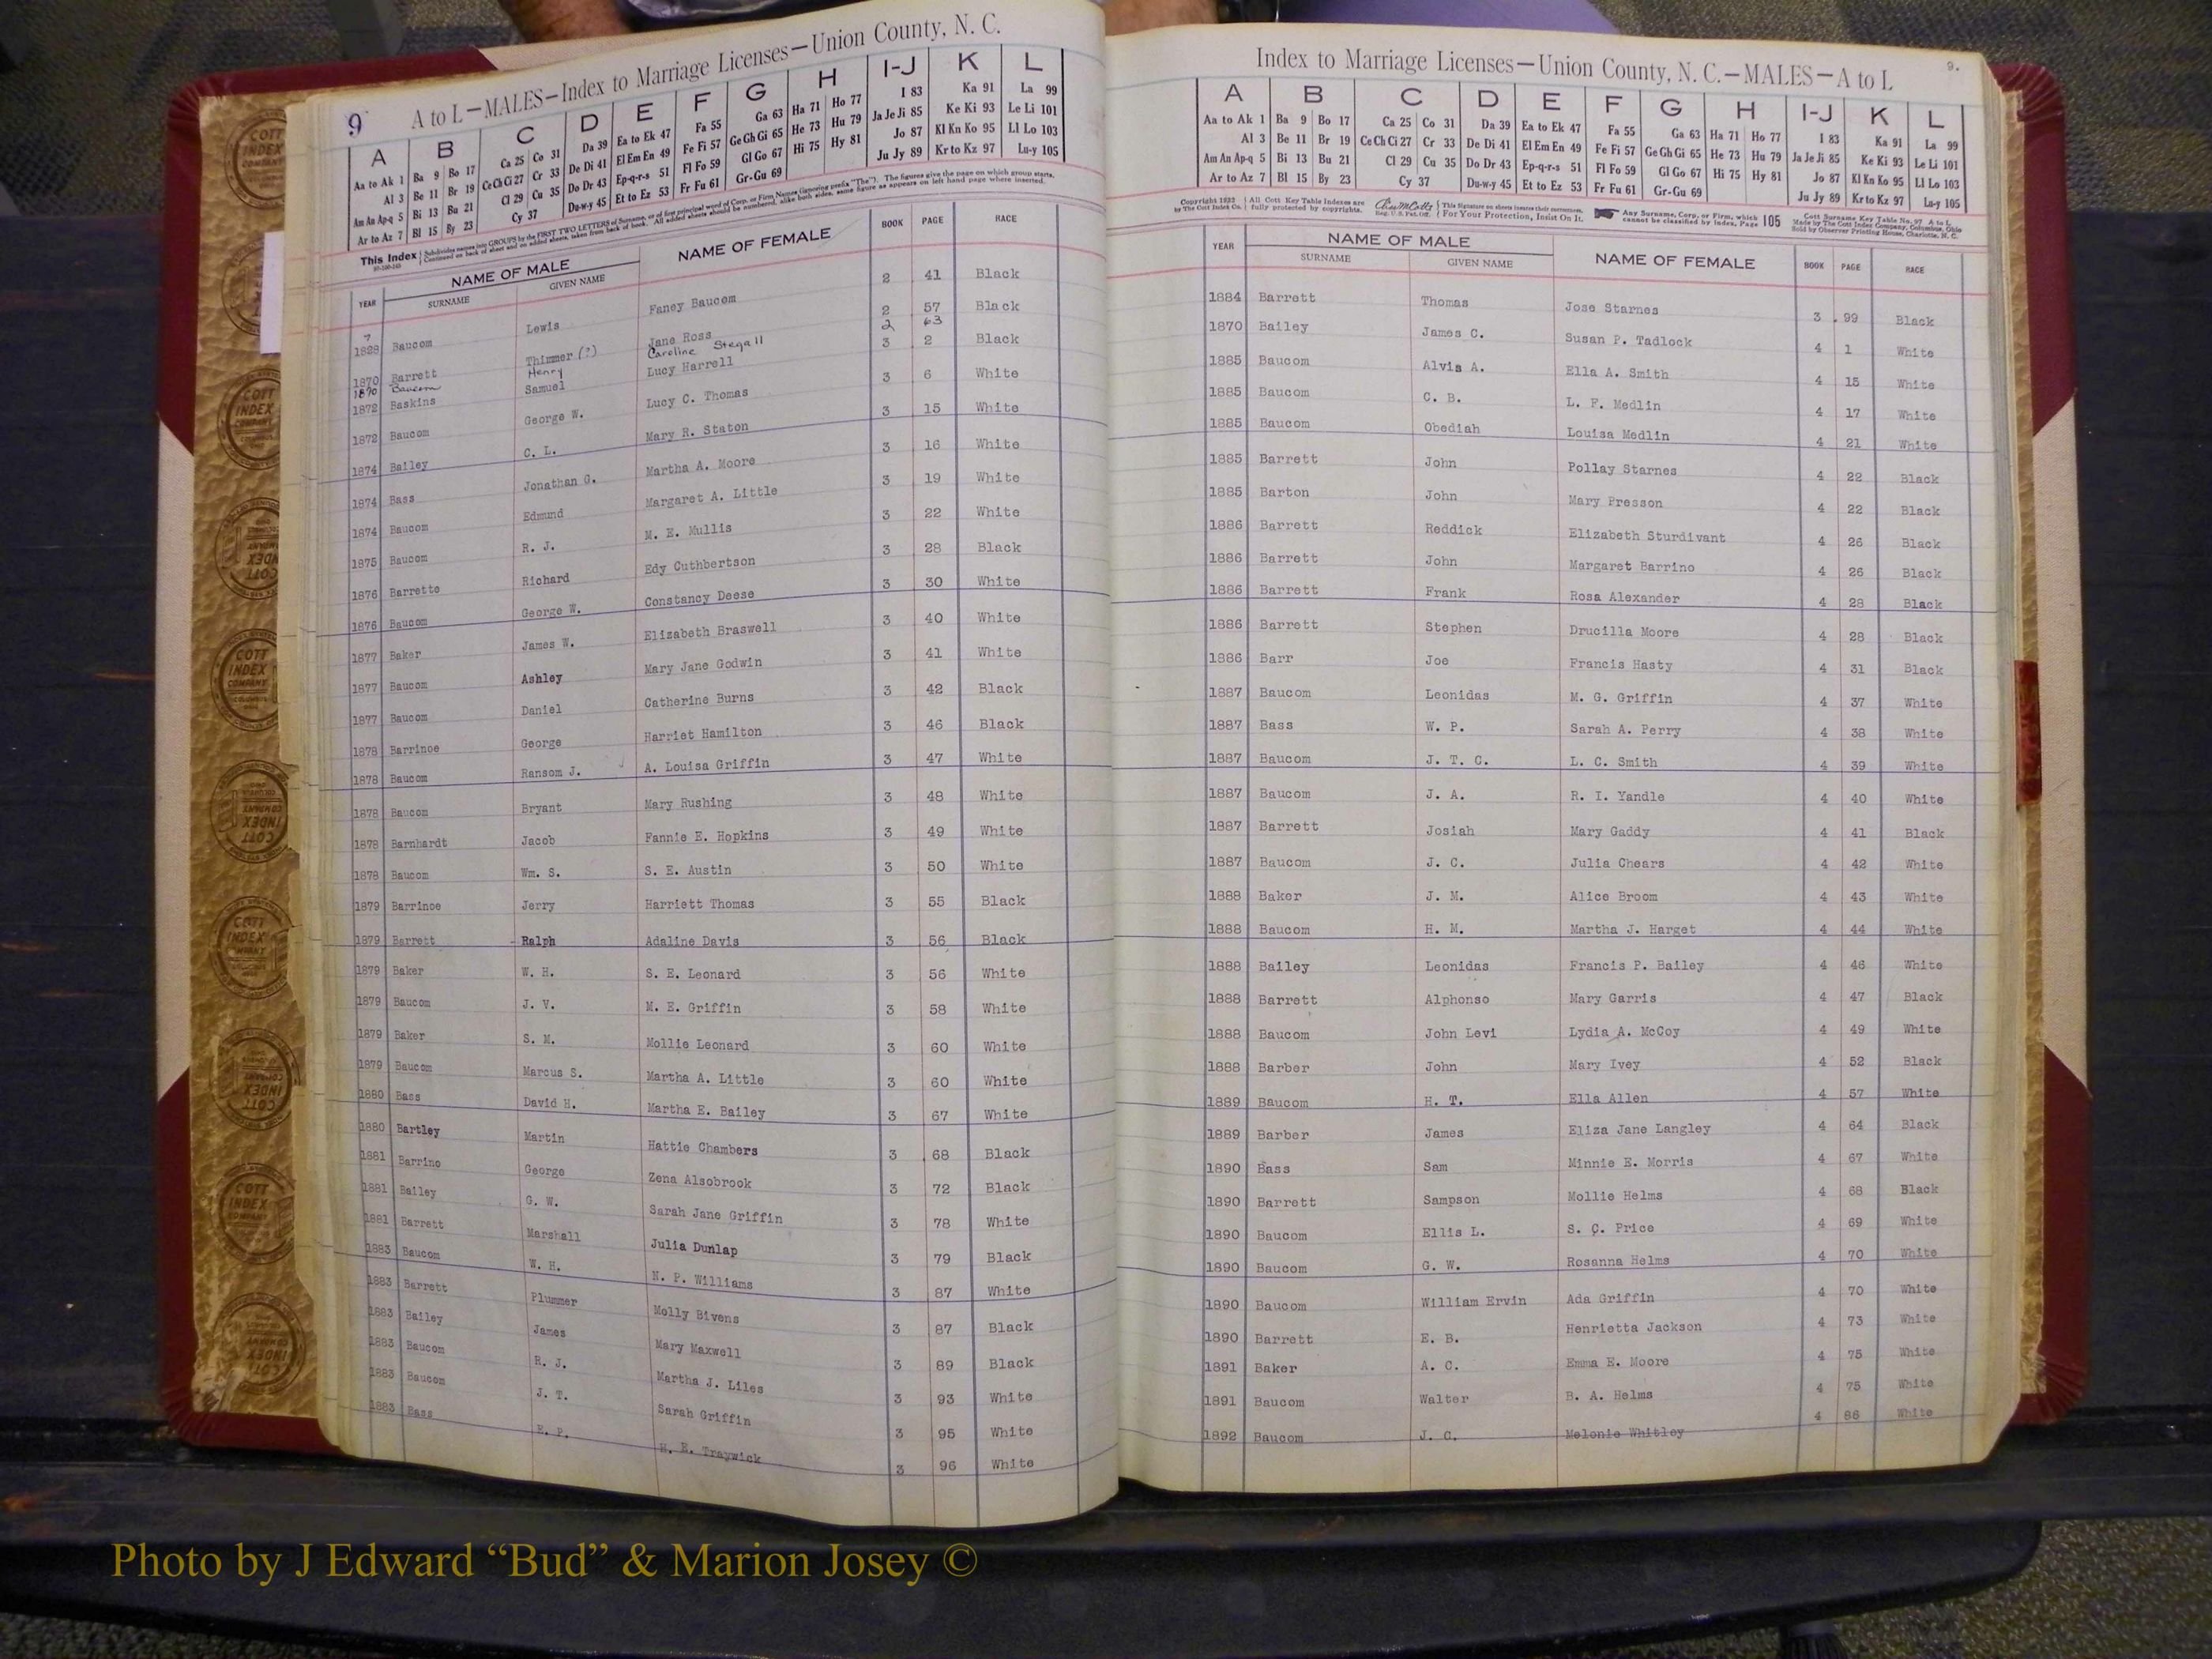 9 A to L—MALES—Index to Marriage Licenses—Union County, N. C.
A B C D E F G H I-J K L
Aa to Ak 1 Ba 9 Bo 17 Ca 25 Co 31 Da 39 Ea to Ek 47 Fa 55 Ga 63 Ha 71 Ho 77 I 83 Ka 91 La 99
Al 3 Be 11 Br 19 Ce Ch Ci 27 Cr 33 De Di 41 El Em En 49 Fe Fi 57 Ge Gh Gi 65 He 73 Hu 79 Ja Je Ji 85 Ke Ki 93 Le Li 101
Am An Ap-q 5 Bi 13 Bu 21 Cl 29 Cu 35 Do Dr 43 Ep-q-r-s 51 Fl Fo 59 Gl Go 67 Hi 75 Hy 81 Jo 87 Kl Kn Ko 95 Ll Lo 103
Ar to Az 7 Bl 15 By 23 Cy 37 Du-w-y 45 Et to Ez 53 Fr Fu 61 Gr-Gu 69 Ju Jy 89 Kr to Kz 97 Lu-y 105
This Index Subdivides names into GROUPS by the FIRST TWO LETTERS of Surname, or of first principal word of Corp. or Firm Names (ignoring prefix "The"). The figures give the page on which group starts.
Continued on back of sheet and on added sheets, taken from back of book. All added sheets should be numbered, alike both sides, same figure as appears on left hand page where inserted.
YEAR NAME OF MALE NAME OF FEMALE BOOK PAGE RACE
SURNAME GIVEN NAME
7
1828 Baucom Lewis Fancy Baucom 2 41 Black
1870 Barrett Thimmer (?) Jane Ross 2 57 Black
1870 Baucom Henry Caroline Stegall 2 63
1872 Baskins Samuel Lucy Harrell 3 2 Black
1872 Baucom George W. Lucy C. Thomas 3 6 White
1874 Bailey C. L. Mary R. Staton 3 15 White
1874 Bass Jonathan G. Martha A. Moore 3 16 White
1874 Baucom Edmund Margaret A. Little 3 19 White
1875 Baucom R. J. M. E. Mullis 3 22 White
1876 Barrette Richard Edy Cuthbertson 3 28 Black
1876 Baucom George W. Constancy Deese 3 30 White
1877 Baker James W. Elizabeth Braswell 3 40 White
1877 Baucom Ashley Mary Jane Godwin 3 41 White
1877 Baucom Daniel Catherine Burns 3 42 Black
1878 Barrinoe George Harriet Hamilton 3 46 Black
1878 Baucom Ransom J. A. Louisa Griffin 3 47 White
1878 Baucom Bryant Mary Rushing 3 48 White
1878 Barnhardt Jacob Fannie E. Hopkins 3 49 White
1878 Baucom Wm. S. S. E. Austin 3 50 White
1879 Barrinoe Jerry Harriett Thomas 3 55 Black
1879 Barrett Ralph Adaline Davis 3 56 Black
1879 Baker W. H. S. E. Leonard 3 56 White
1879 Baucom J. V. M. E. Griffin 3 58 White
1879 Baker S. M. Mollie Leonard 3 60 White
1879 Baucom Marcus S. Martha A. Little 3 60 White
1880 Bass David H. Martha E. Bailey 3 67 White
1880 Bartley Martin Hattie Chambers 3 68 Black
1881 Barrino George Zena Alsobrook 3 72 Black
1881 Bailey G. W. Sarah Jane Griffin 3 78 White
1881 Barrett Marshall Julia Dunlap 3 79 Black
1883 Baucom W. H. N. P. Williams 3 87 White
1883 Barrett Plummer Molly Bivens 3 87 Black
1883 Bailey James Mary Maxwell 3 89 Black
1883 Baucom R. J. Martha J. Liles 3 93 White
1883 Baucom J. T. Sarah Griffin 3 95 White
1883 Bass E. P. H. E. Traywick 3 96 White
Index to Marriage Licenses—Union County, N. C.—MALES—A to L 9.
A B C D E F G H I-J K L
Aa to Ak 1 Ba 9 Bo 17 Ca 25 Co 31 Da 39 Ea to Ek 47 Fa 55 Ga 63 Ha 71 Ho 77 I 83 Ka 91 La 99
Al 3 Be 11 Br 19 Ce Ch Ci 27 Cr 33 De Di 41 El Em En 49 Fe Fi 57 Ge Gh Gi 65 He 73 Hu 79 Ja Je Ji 85 Ke Ki 93 Le Li 101
Am An Ap-q 5 Bi 13 Bu 21 Cl 29 Cu 35 Do Dr 43 Ep-q-r-s 51 Fl Fo 59 Gl Go 67 Hi 75 Hy 81 Jo 87 Kl Kn Ko 95 Ll Lo 103
Ar to Az 7 Bl 15 By 23 Cy 37 Du-w-y 45 Et to Ez 53 Fr Fu 61 Gr-Gu 69 Ju Jy 89 Kr to Kz 97 Lu-y 105
Copyright 1922 by The Cott Index Co. All Cott Key Table Indexes are fully protected by copyrights. Reg. U.S. Pat. Off. This Signature on sheets insures their correctness. For Your Protection, Insist On It. Any Surname, Corp. or Firm, which cannot be classified by index, Page 105 Cott Surname Key Table No. 97 A to L Made by The Cott Index Company, Columbus, Ohio Sold by Observer Printing House, Charlotte, N. C.
YEAR NAME OF MALE NAME OF FEMALE BOOK PAGE RACE
SURNAME GIVEN NAME
1884 Barrett Thomas Jose Starnes 3 99 Black
1870 Bailey James C. Susan P. Tadlock 4 1 White
1885 Baucom Alvis A. Ella A. Smith 4 15 White
1885 Baucom C. B. L. F. Medlin 4 17 White
1885 Baucom Obediah Louisa Medlin 4 21 White
1885 Barrett John Pollay Starnes 4 22 Black
1885 Barton John Mary Presson 4 22 Black
1886 Barrett Reddick Elizabeth Sturdivant 4 26 Black
1886 Barrett John Margaret Barrino 4 26 Black
1886 Barrett Frank Rosa Alexander 4 28 Black
1886 Barrett Stephen Drucilla Moore 4 28 Black
1886 Barr Joe Francis Hasty 4 31 Black
1887 Baucom Leonidas M. G. Griffin 4 37 White
1887 Bass W. P. Sarah A. Perry 4 38 White
1887 Baucom J. T. C. L. C. Smith 4 39 White
1887 Baucom J. A. R. I. Yandle 4 40 White
1887 Barrett Josiah Mary Gaddy 4 41 Black
1887 Baucom J. C. Julia Chears 4 42 White
1888 Baker J. M. Alice Broom 4 43 White
1888 Baucom H. M. Martha J. Harget 4 44 White
1888 Bailey Leonidas Francis P. Bailey 4 46 White
1888 Barrett Alphonso Mary Garris 4 47 Black
1888 Baucom John Levi Lydia A. McCoy 4 49 White
1888 Barber John Mary Ivey 4 52 Black
1889 Baucom H. T. Ella Allen 4 57 White
1889 Barber James Eliza Jane Langley 4 64 Black
1890 Bass Sam Minnie E. Morris 4 67 White
1890 Barrett Sampson Mollie Helms 4 68 Black
1890 Baucom Ellis L. S. C. Price 4 69 White
1890 Baucom G. W. Rosanna Helms 4 70 White
1890 Baucom William Ervin Ada Griffin 4 70 White
1890 Barrett E. B. Henrietta Jackson 4 73 White
1891 Baker A. C. Emma E. Moore 4 75 White
1891 Baucom Walter B. A. Helms 4 75 White
1892 Baucom J. C. Melonie Whitley 4 86 White
Photo by J Edward “Bud” & Marion Josey ©